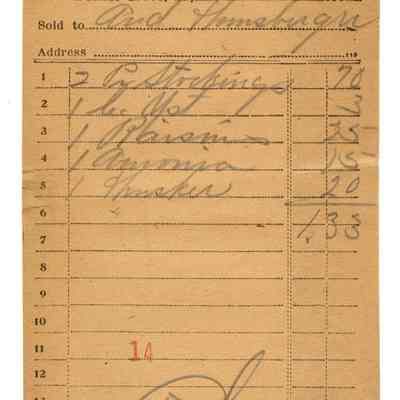 Sold to And Hunsberger
Address
1 2 Pr Stockings 70
2 1 3
3 1 Raisin 25
4 1 Amonia 15
5 1 Husker 20
6 1.33
7
8
9
10
11 14
12